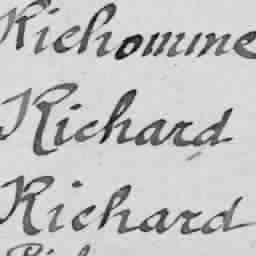 Richomme
Richard
Richard